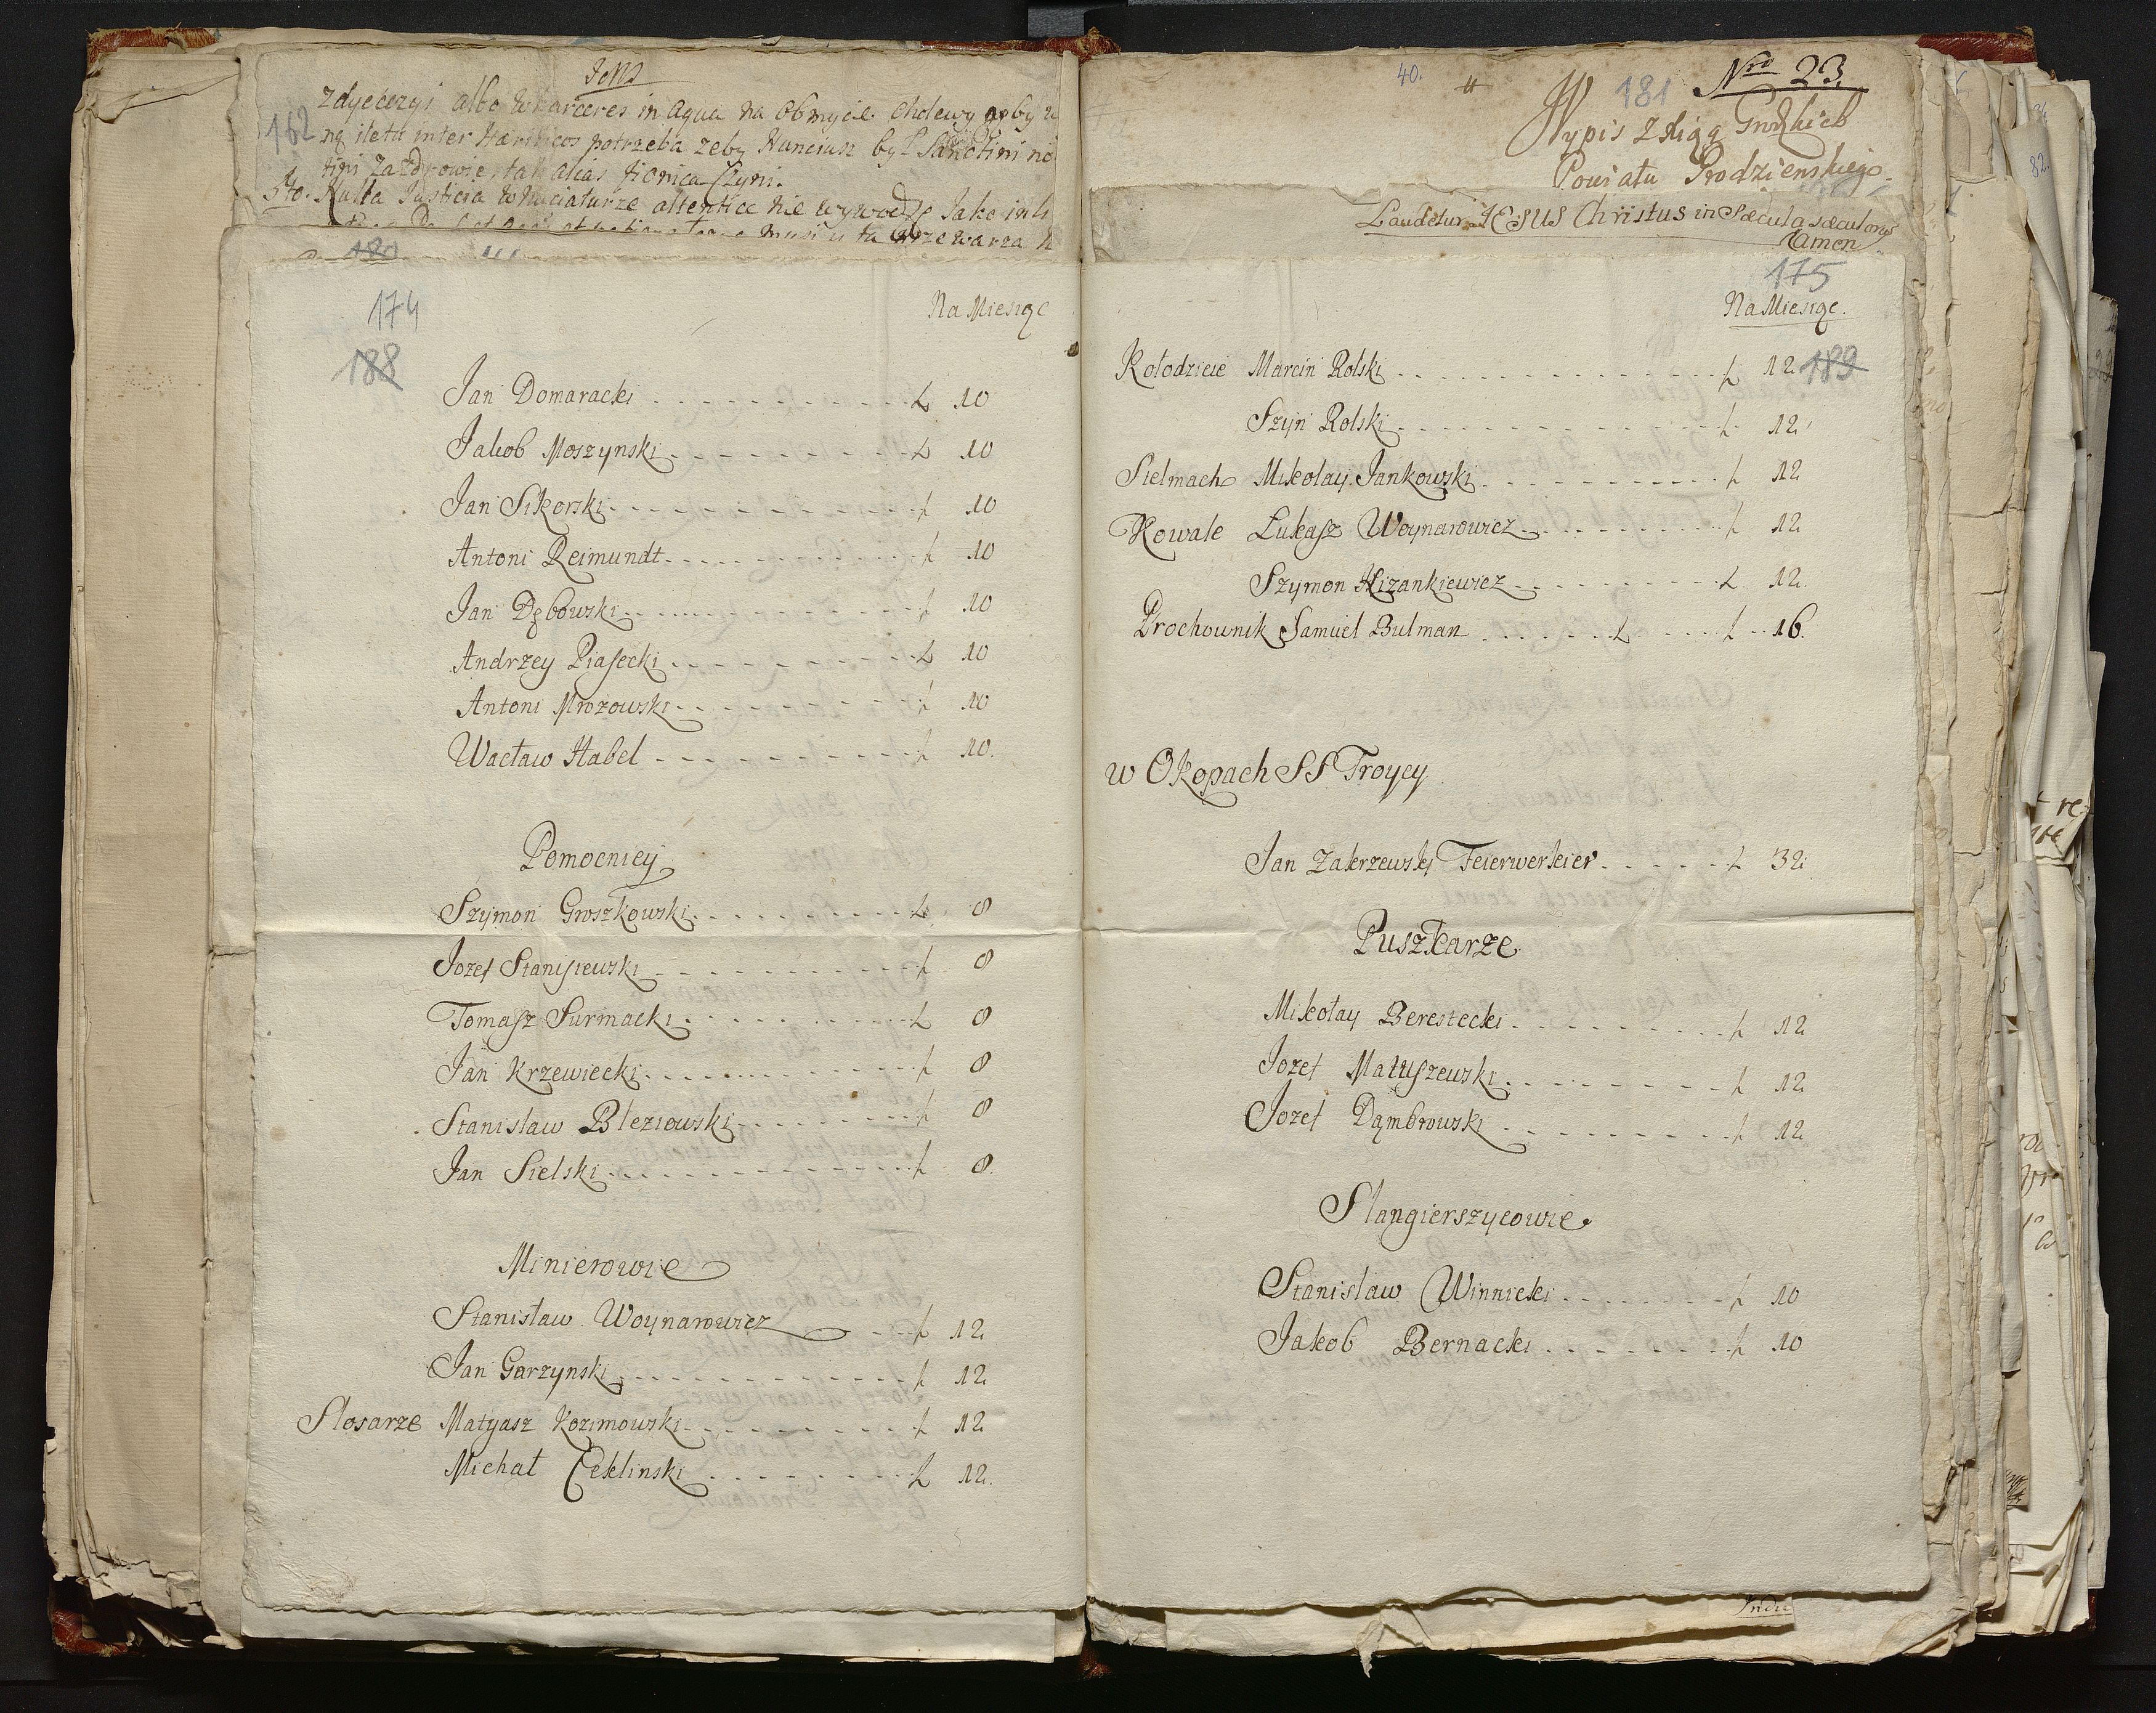 162
zdyecezyi albo w karceres in aqua na obmycie cholewy
inter Haeriticos potrzeba zeby Nunciusz byl
5to. Nulla Justicia w Nunciaturze attentice nie wywodzę Jako
180
174
188
Na Miesiąc
Jan Domaracki - - - - - - - - - - ł 10
Jakob Moszynski - - - - - - - - - ł 10
Jan Sikorski - - - - - - - - - - - ł 10
Antoni Reimundt - - - - - - - - - ł 10
Jan Dębowski - - - - - - - - - - - ł 10
Andrzey Piasecki - - - - - - - - - ł 10
Antoni Mrozowski - - - - - - - - - ł 10
Wacław Habel - - - - - - - - - - ł 10.
Pomocnicy
Szymon Groszkowski - - - - - - - - ł 8
Jozef Stanisiewski - - - - - - - - - ł 8
Tomasz Surmacki - - - - - - - - - ł 8
Jan Krzewiecki - - - - - - - - - - ł 8
Stanislaw Bleziowski - - - - - - - ł 8
Jan Sielski - - - - - - - - - - - - ł 8.
Minierowie
Stanisław Woynarowicz - - ł 12
Jan Garzynski - - - - - - - - - - ł 12
Slosarze Matyasz Kozimowski - - - - - - - - ł 12
Michał Ceklinski - - - - - - - - ł 12.
40.
181
Nro 23
Wypis z Xiąg Grodzkich
Powiatu Grodzienskiego.
Laudetur JESUS Christus in Sæcula sæculorũ
Amen
175
Na Miesiąc.
189
Kołodzieie Marcin Rolski - - - - - - - - - - - - ł 12
Szyn Rolski - - - - - - - - - - - - ł 12
Stelmach Mikolay Jankowski - - - - - - - - - ł 12
Kowale Lukasz Woynarowicz - - - - - - - - ł 12
Szymon Hizankiewicz - - - - - - - - ł 12
Prochownik Samuel Bulman - - - - - ł - - - - ł - - 16.
w Okopach SS Troycy
Jan Zakrzewski Feierwerkier - - - - - ł 32
Puszkarze
Mikołay Berestecki - - - - - - - - - ł 12
Jozef Matuszewski - - - - - - - - - ł 12
Jozef Dąmbrowski - - - - - - - - - ł 12
Slangierszycowie
Stanislaw Winnicki - - - - - - - ł 10
Jakob Bernacki - - - - - - - - ł 10